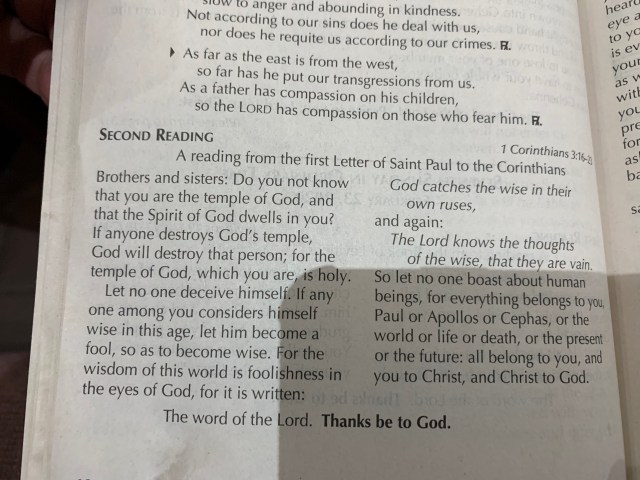 slow to anger and abounding in kindness.
Not according to our sins does he deal with us,
nor does he requite us according to our crimes. ℟.
As far as the east is from the west,
so far has he put our transgressions from us.
As a father has compassion on his children,
so the LORD has compassion on those who fear him. ℟.
SECOND READING
1 Corinthians 3:16-23
A reading from the first Letter of Saint Paul to the Corinthians
Brothers and sisters: Do you not know
that you are the temple of God, and
that the Spirit of God dwells in you?
If anyone destroys God's temple,
God will destroy that person; for the
temple of God, which you are, is holy.
Let no one deceive himself. If any
one among you considers himself
wise in this age, let him become a
fool, so as to become wise. For the
wisdom of this world is foolishness in
the eyes of God, for it is written:
God catches the wise in their
own ruses,
and again:
The Lord knows the thoughts
of the wise, that they are vain.
So let no one boast about human
beings, for everything belongs to you,
Paul or Apollos or Cephas, or the
world or life or death, or the present
or the future: all belong to you, and
you to Christ, and Christ to God.
The word of the Lord. Thanks be to God.
heard
eye a
to yo
is ev
your
as w
with
you
pre
for
as
ba
sa